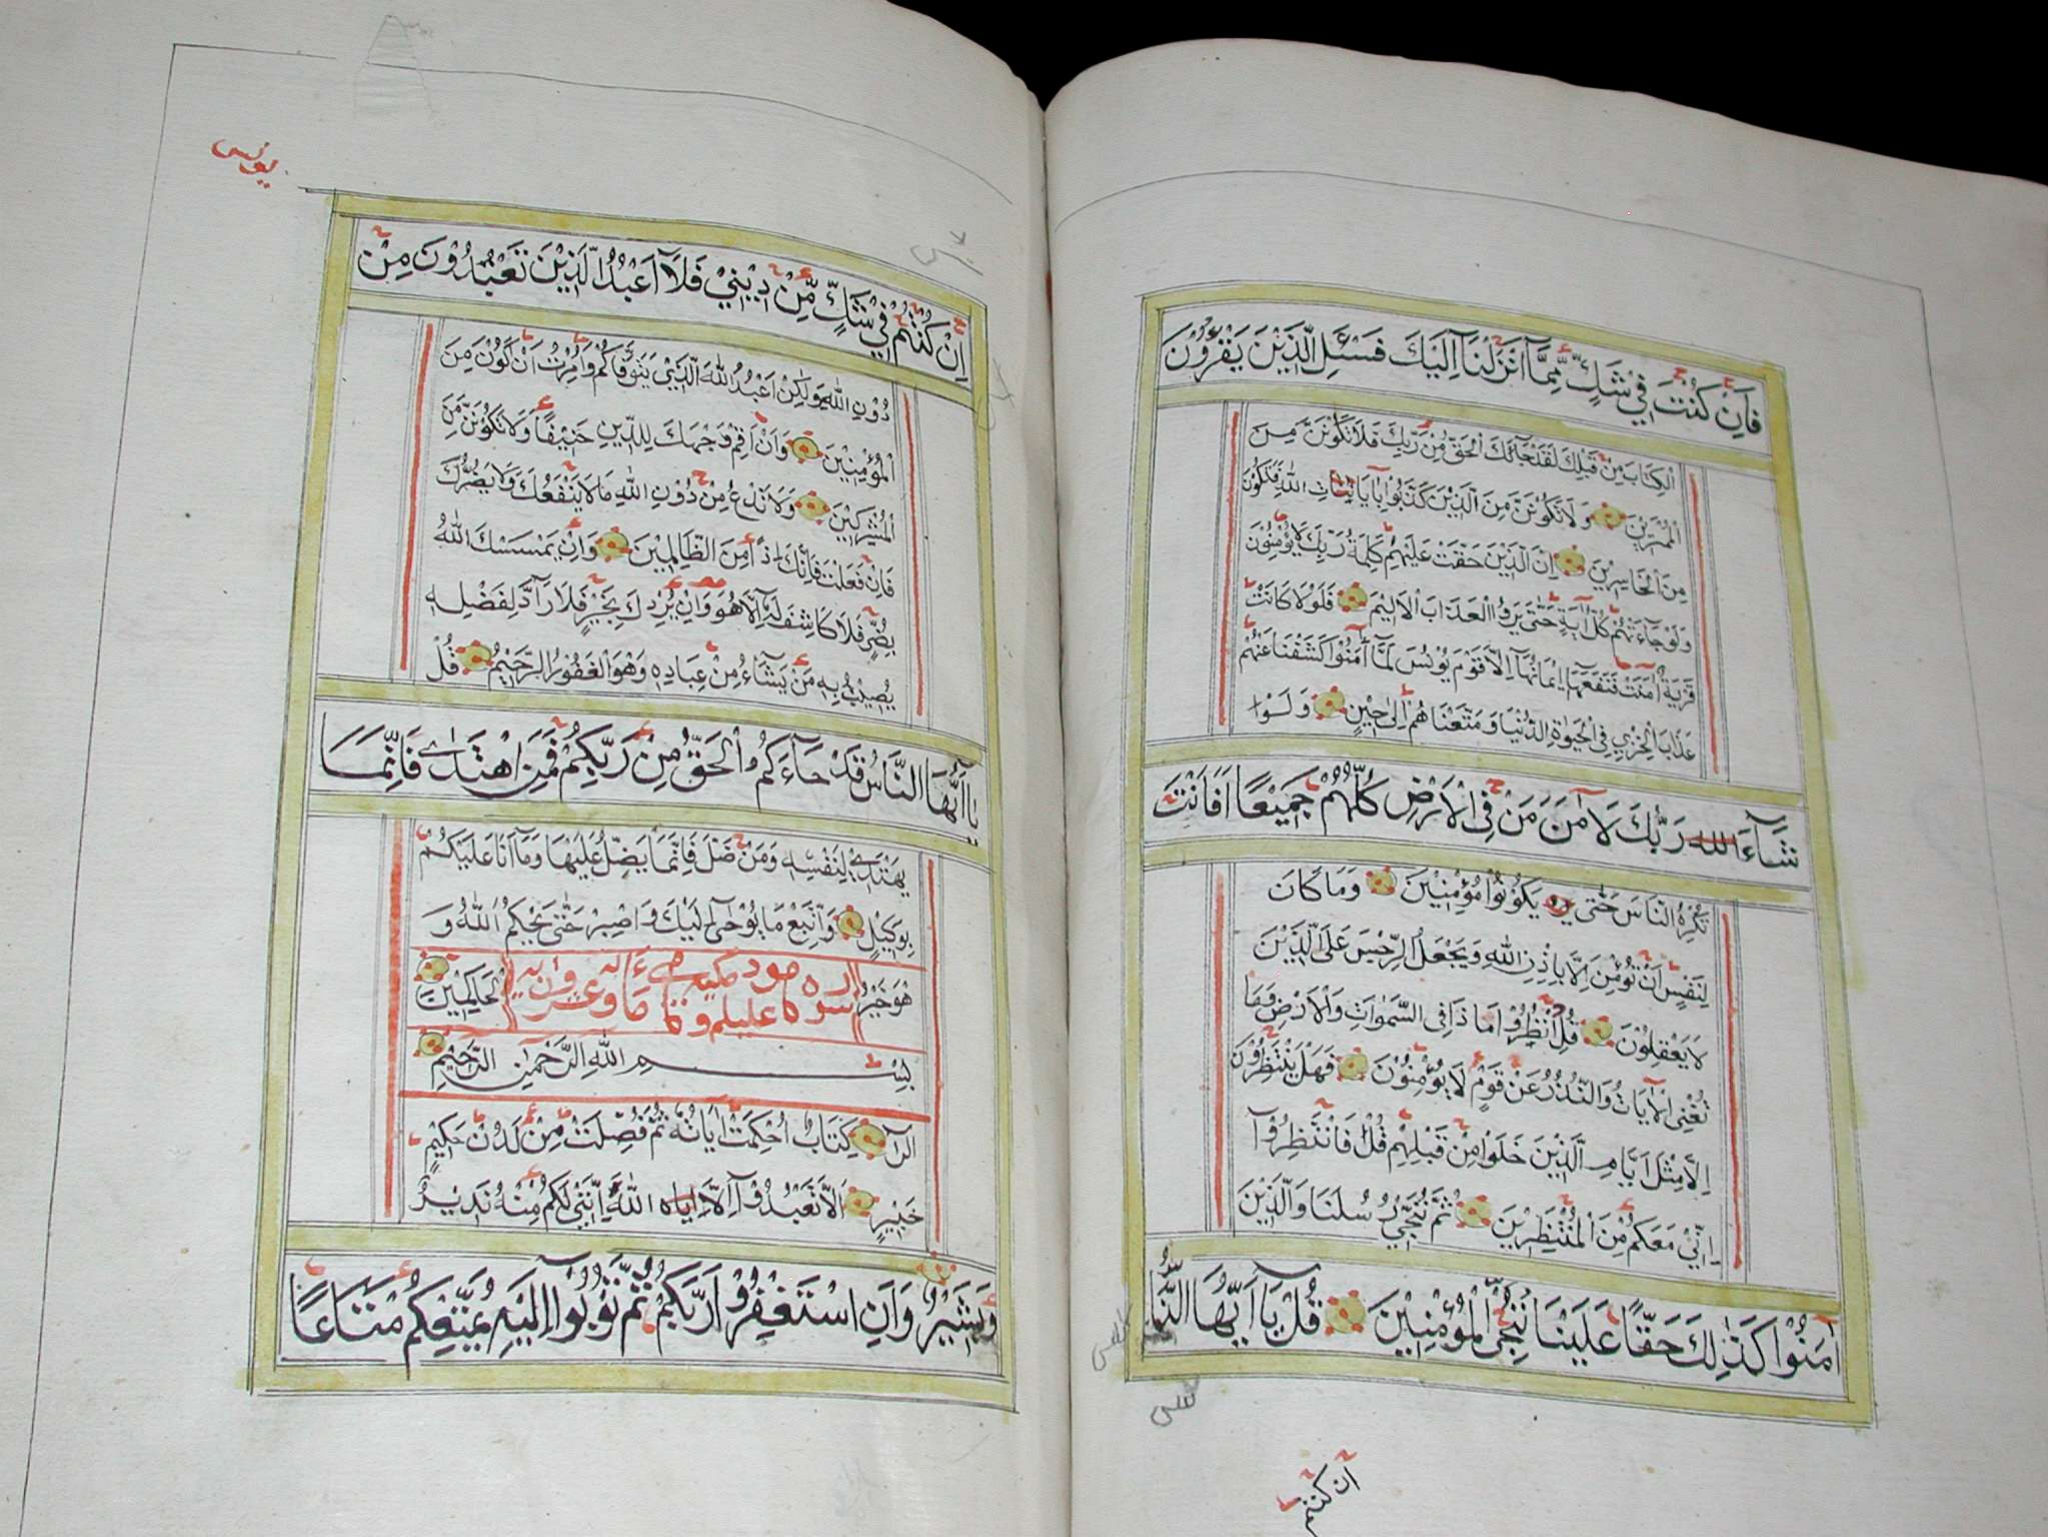 فَاِنْ كُنْتَ فِيْ شَكٍّ مِّمَّآ اَنْزَلْنَآ اِلَيْكَ فَسْـَٔلِ الَّذِيْنَ يَقْرَؤُنَ
الْكِتَابَ مِنْ قَبْلِكَ لَقَدْ جَآءَكَ الْحَقُّ مِنْ رَّبِّكَ فَلَا تَكُوْنَنَّ مِنَ
الْمُمْتَرِيْنَ وَلَا تَكُوْنَنَّ مِنَ الَّذِيْنَ كَذَّبُوْا بِاٰيَاتِ اللّٰهِ فَتَكُوْنَ
مِنَ الْخَاسِرِيْنَ اِنَّ الَّذِيْنَ حَقَّتْ عَلَيْهِمْ كَلِمَةُ رَبِّكَ لَا يُؤْمِنُوْنَ
وَلَوْ جَآءَتْهُمْ كُلُّ اٰيَةٍ حَتّٰى يَرَوُا الْعَذَابَ الْاَلِيْمَ فَلَوْلَا كَانَتْ
قَرْيَةٌ اٰمَنَتْ فَنَفَعَهَآ اِيْمَانُهَآ اِلَّا قَوْمَ يُوْنُسَ لَمَّآ اٰمَنُوْا كَشَفْنَا عَنْهُمْ
عَذَابَ الْخِزْيِ فِى الْحَيٰوةِ الدُّنْيَا وَمَتَّعْنَاهُمْ اِلٰى حِيْنٍ وَلَوْ
شَآءَ رَبُّكَ لَاٰمَنَ مَنْ فِى الْاَرْضِ كُلُّهُمْ جَمِيْعًا اَفَاَنْتَ
تُكْرِهُ النَّاسَ حَتّٰى يَكُوْنُوْا مُؤْمِنِيْنَ وَمَا كَانَ
لِنَفْسٍ اَنْ تُؤْمِنَ اِلَّا بِاِذْنِ اللّٰهِ وَيَجْعَلُ الرِّجْسَ عَلَى الَّذِيْنَ
لَا يَعْقِلُوْنَ قُلِ انْظُرُوْا مَا ذَا فِى السَّمٰوَاتِ وَالْاَرْضِ وَمَا
تُغْنِى الْاٰيَاتُ وَالنُّذُرُ عَنْ قَوْمٍ لَا يُؤْمِنُوْنَ فَهَلْ يَنْتَظِرُوْنَ
اِلَّا مِثْلَ اَيَّامِ الَّذِيْنَ خَلَوْا مِنْ قَبْلِهِمْ قُلْ فَانْتَظِرُوْٓا
اِنِّيْ مَعَكُمْ مِّنَ الْمُنْتَظِرِيْنَ ثُمَّ نُنَجِّيْ رُسُلَنَا وَالَّذِيْنَ
اٰمَنُوْا كَذٰلِكَ حَقًّا عَلَيْنَا نُنْجِى الْمُؤْمِنِيْنَ قُلْ يَآ اَيُّهَا النَّاسُ
ان كنتم
يونس
اِنْ كُنْتُمْ فِيْ شَكٍّ مِّنْ دِيْنِيْ فَلَآ اَعْبُدُ الَّذِيْنَ تَعْبُدُوْنَ مِنْ
دُوْنِ اللّٰهِ وَلٰكِنْ اَعْبُدُ اللّٰهَ الَّذِيْ يَتَوَفَّاكُمْ وَاُمِرْتُ اَنْ اَكُوْنَ مِنَ
الْمُؤْمِنِيْنَ وَاَنْ اَقِمْ وَجْهَكَ لِلدِّيْنِ حَنِيْفًا وَلَا تَكُوْنَنَّ مِنَ
الْمُشْرِكِيْنَ وَلَا تَدْعُ مِنْ دُوْنِ اللّٰهِ مَا لَا يَنْفَعُكَ وَلَا يَضُرُّكَ
فَاِنْ فَعَلْتَ فَاِنَّكَ اِذًا مِنَ الظَّالِمِيْنَ وَاِنْ يَمْسَسْكَ اللّٰهُ
بِضُرٍّ فَلَا كَاشِفَ لَهٗٓ اِلَّا هُوَ وَاِنْ يُرِدْكَ بِخَيْرٍ فَلَا رَآدَّ لِفَضْلِهٖ
يُصِيْبُ بِهٖ مَنْ يَشَآءُ مِنْ عِبَادِهٖ وَهُوَ الْغَفُوْرُ الرَّحِيْمُ قُلْ
يَآ اَيُّهَا النَّاسُ قَدْ جَآءَكُمُ الْحَقُّ مِنْ رَبِّكُمْ فَمَنِ اهْتَدٰى فَاِنَّمَا
يَهْتَدِيْ لِنَفْسِهٖ وَمَنْ ضَلَّ فَاِنَّمَا يَضِلُّ عَلَيْهَا وَمَآ اَنَا عَلَيْكُمْ
بِوَكِيْلٍ وَاتَّبِعْ مَا يُوْحٰٓى اِلَيْكَ وَاصْبِرْ حَتّٰى يَحْكُمَ اللّٰهُ وَ
هُوَ خَيْرُ الْحَاكِمِيْنَ
سورة هود مكية
بِسْمِ اللّٰهِ الرَّحْمٰنِ الرَّحِيْمِ
الٓرٰ كِتَابٌ اُحْكِمَتْ اٰيَاتُهٗ ثُمَّ فُصِّلَتْ مِنْ لَدُنْ حَكِيْمٍ
خَبِيْرٍ اَلَّا تَعْبُدُوْٓا اِلَّا اللّٰهَ اِنَّنِيْ لَكُمْ مِنْهُ نَذِيْرٌ
وَبَشِيْرٌ وَاَنِ اسْتَغْفِرُوْا رَبَّكُمْ ثُمَّ تُوْبُوْٓا اِلَيْهِ يُمَتِّعْكُمْ مَتَاعًا